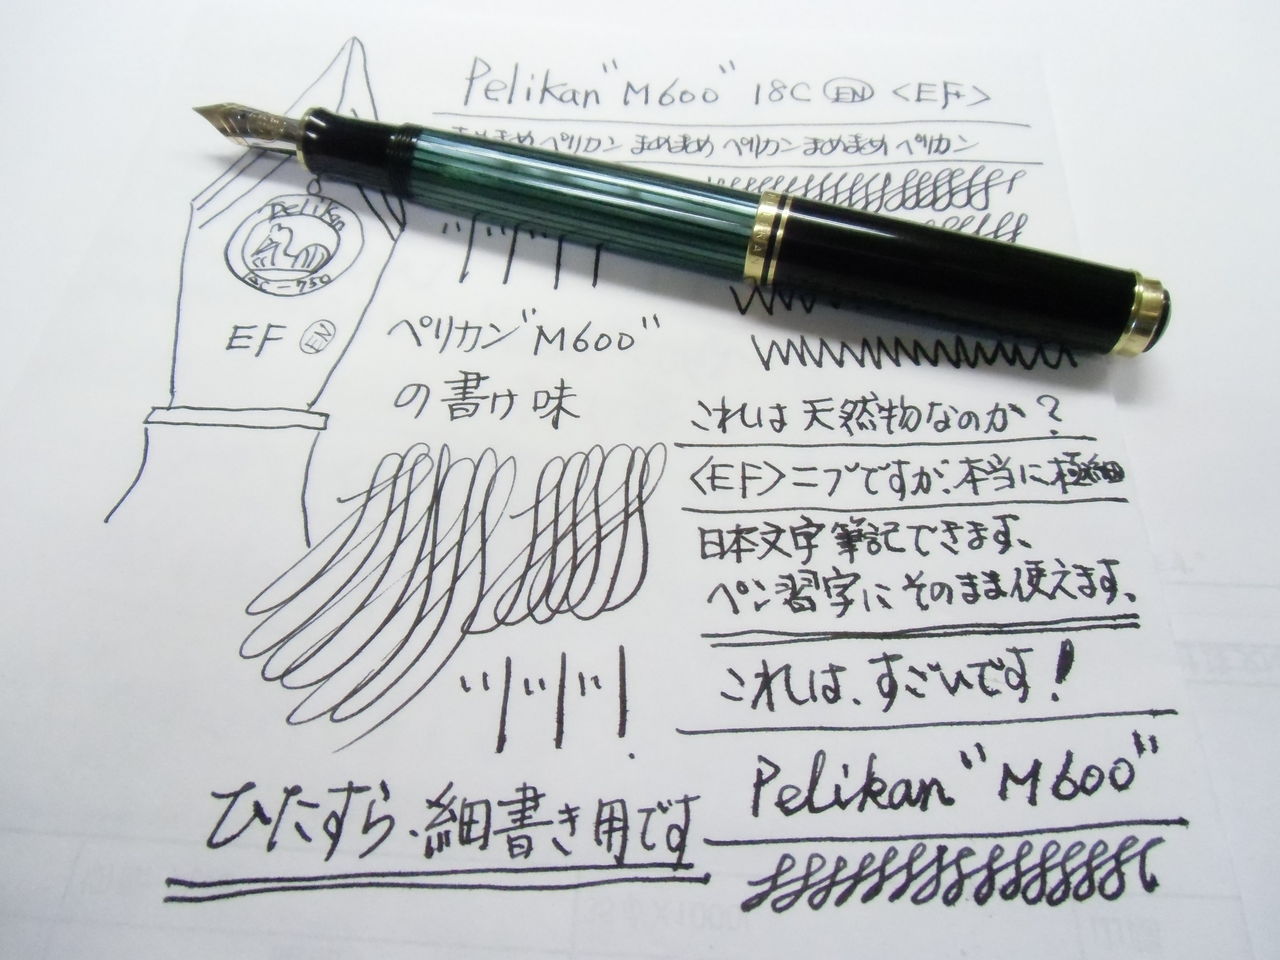 Pelikan "M600" 18C EN <EF>
まめ ペリカン まめまめ ペリカン まめまめ ペリカン
Pelikan
EF EN
ペリカン"M600"
の書け味
これは天然物なのか?
<EF>ニブですが、本当に極細
日本文字筆記できます、
ペン習字にそのまま使えます、
これは、すごいです!
Pelikan "M600"
ひたすら、細書き用です